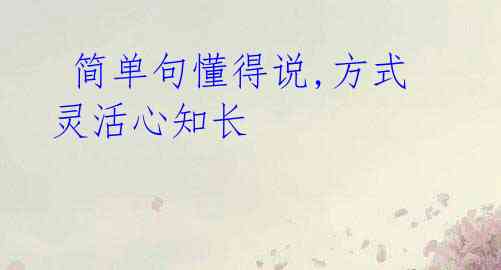 简单句懂得说,方式
灵活心知长